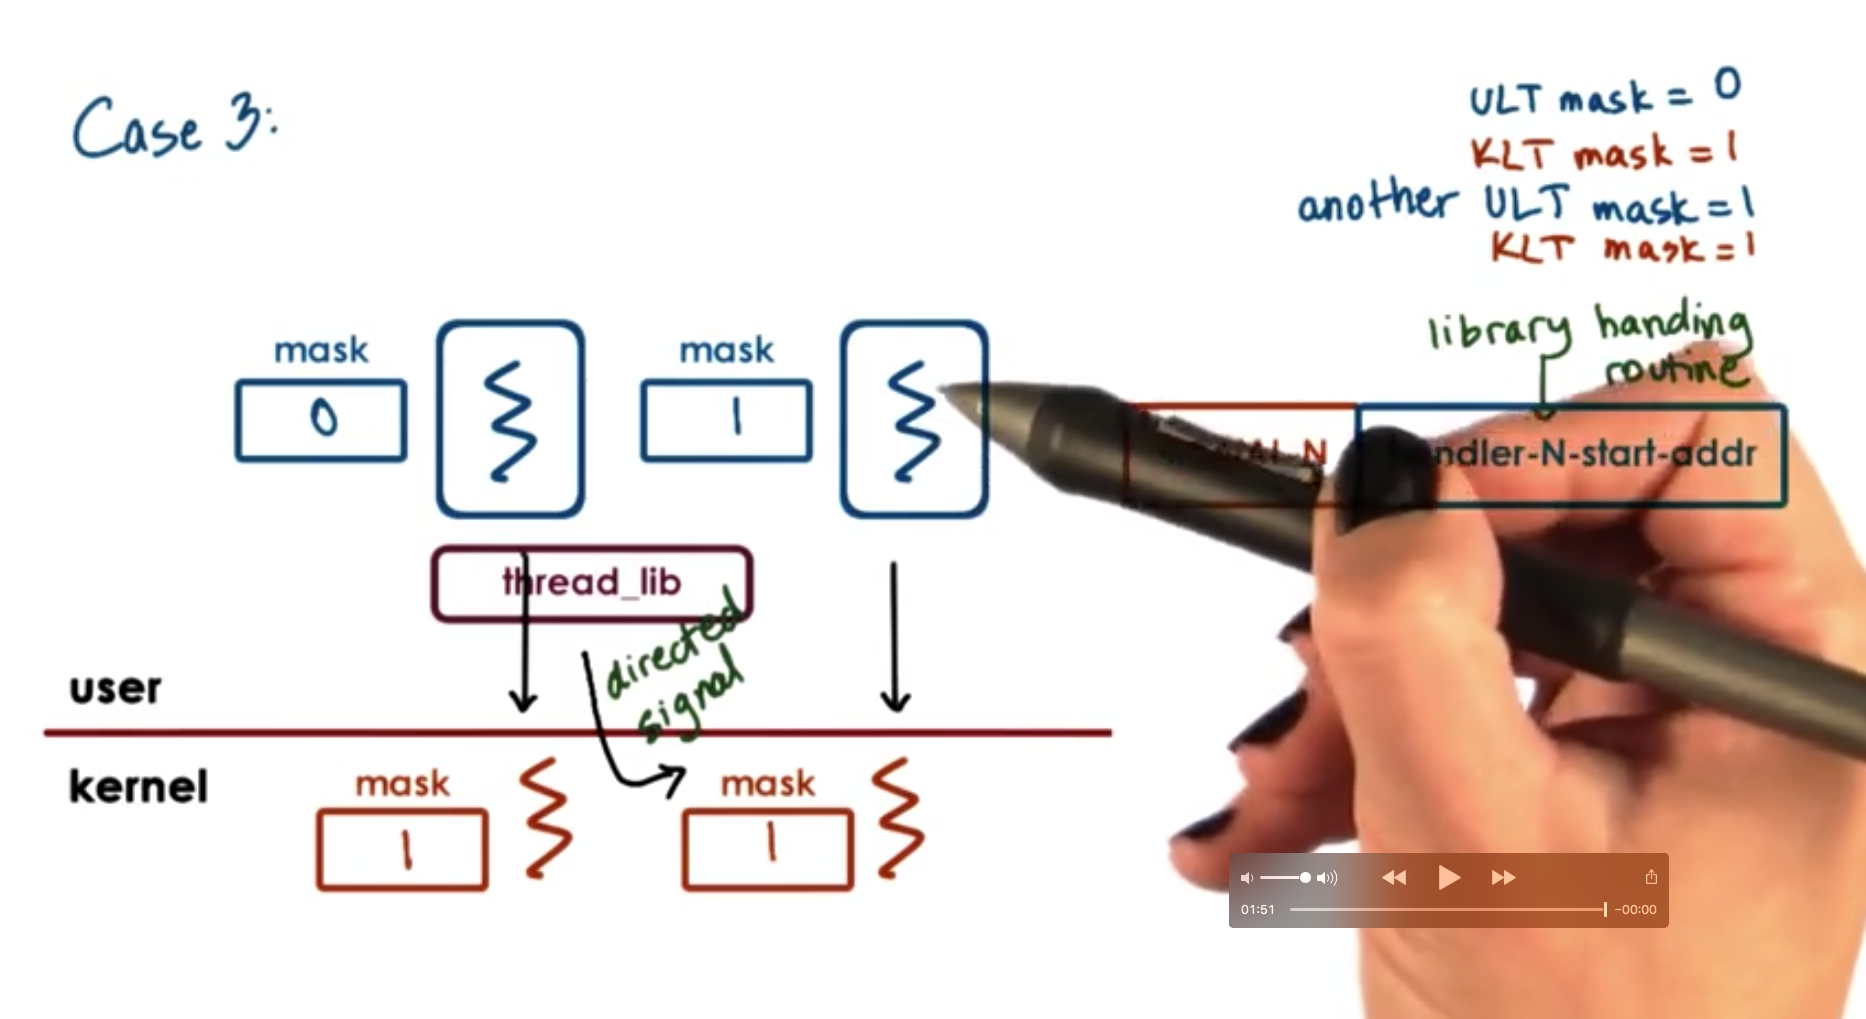 Case 3:
ULT mask = 0
KLT mask = 1
another ULT mask = 1
KLT mask = 1
library handing
routine
mask
mask
0
1
thread_lib
directed
signal
user
kernel
mask
mask
1
1
01:51
-00:00